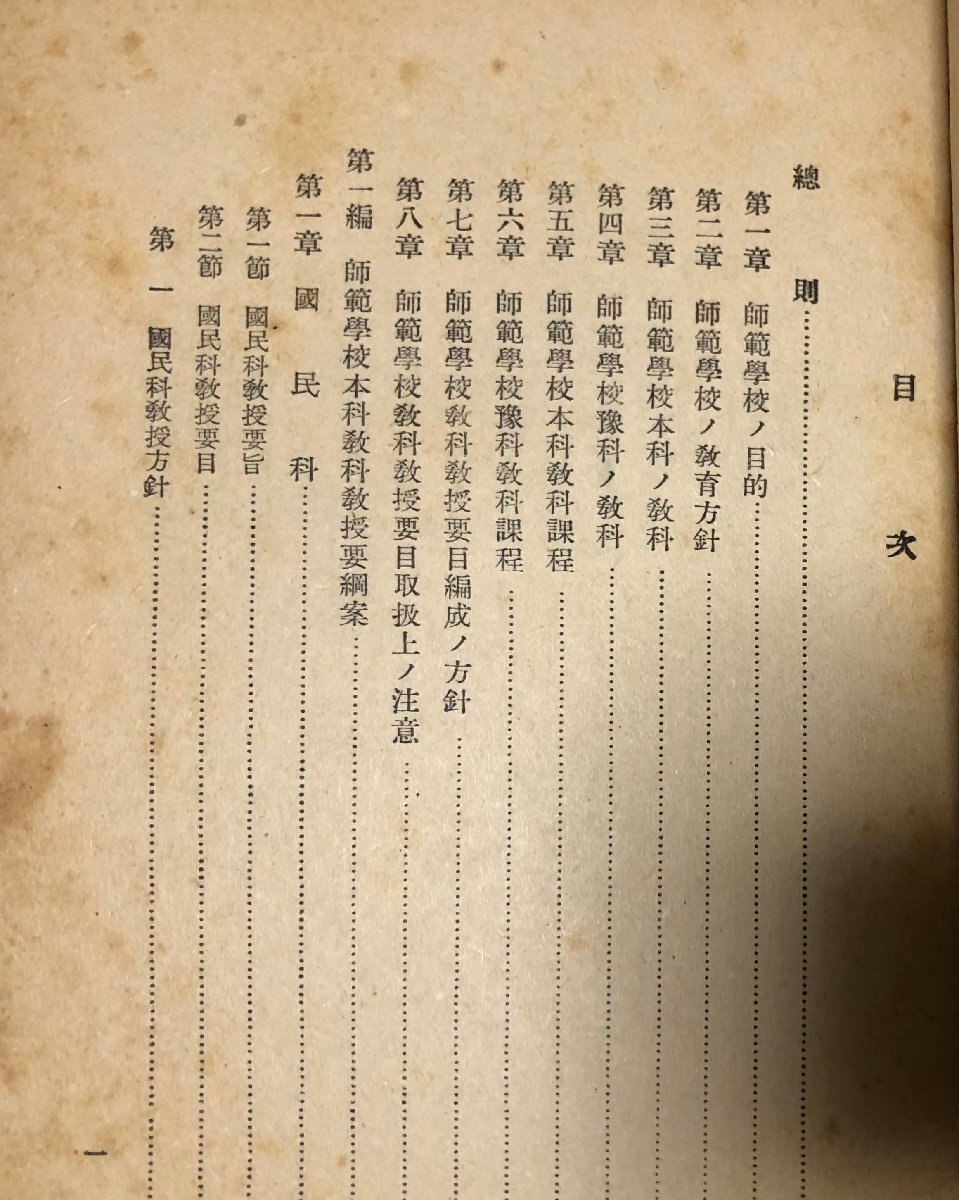 目次
總則
第一章 師範學校ノ目的
第二章 師範學校ノ敎育方針
第三章 師範學校本科ノ敎科
第四章 師範學校豫科ノ敎科
第五章 師範學校本科敎科課程
第六章 師範學校豫科敎科課程
第七章 師範學校敎科敎授要目編成ノ方針
第八章 師範學校敎科敎授要目取扱上ノ注意
第一編 師範學校本科敎科敎授要綱案
第一章 國民科
第一節 國民科敎授要旨
第二節 國民科敎授要目
第一 國民科敎授方針
一